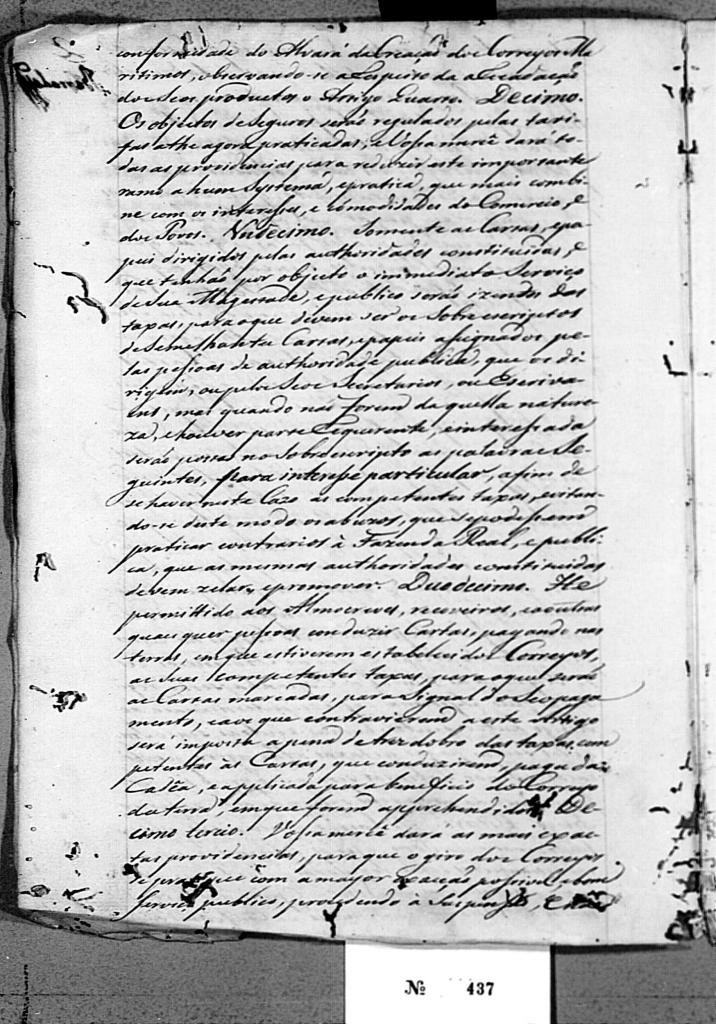 conformidade do Alvará da Creação dos Correyos Ma
ritimos, observando-se a Respeito da aRecadação
dos Seos productos o Artigo Quarto. Decimo.
Os objectos de Seguros serão regulados pelas tari-
fas athe agora praticadas, e Vossa mercê dará to-
das as providencias para reduzir este importante
ramo a hum Systema, e pratica, que mais combi-
ne com os interesses, e cómodidades do Comercio, e
dos Povos. Undecimo. Somente as Cartas, e pa-
peis dirigidos pelas authoridades constituidas, e
que tenhão por objecto o immediato Serviço
de Sua Magestade, e publico serão izentos das
taxas, para o que devem ser os Sobrescriptos
de Semelhantes Cartas, e papeis assignados pe-
las pessoas de authoridade publica, que os di-
rigem, ou pelos Seos Secretarios, ou Escriva-
ens, mas quando não forem daquella nature-
za, e houver parte Requerente, e interessada
serão postas no Sobrescripto as palavras Se-
guintes, para interesse particular, a fim de
se haver neste Cazo as competentes taxas, evitan-
do-se deste modo os abuzos, que se podessem
praticar contrarios à Fazenda Real, e publi-
ca, que as mesmas authoridades constituidas
devem zelar, e promover. Duodecimo. He
permittido aos Almocreves, recoveiros, e a outras
quaes quer pessoas conduzir Cartas, pagando nas
terras, em que estiverem estabelecidos Correyos,
as Suas competentes taxas, para o que serão
as Cartas marcadas, para Signal do Seo paga
mento, e aos que contravierem a este Artigo
será imposta a pena de tresdobro das taxas com
petentes às Cartas, que conduzirem, paga da
Cadêa, e applicada para beneficio do Correyo
da terra, em que forem apprehendidos. De-
cimo tercio. Vossa mercê dará as mais exac-
tas providencias, para que o giro dos Correyos
se pratique com a mayor exacção possivel, e bom
serviço publico, procedendo à Suspensão,
Nº 437